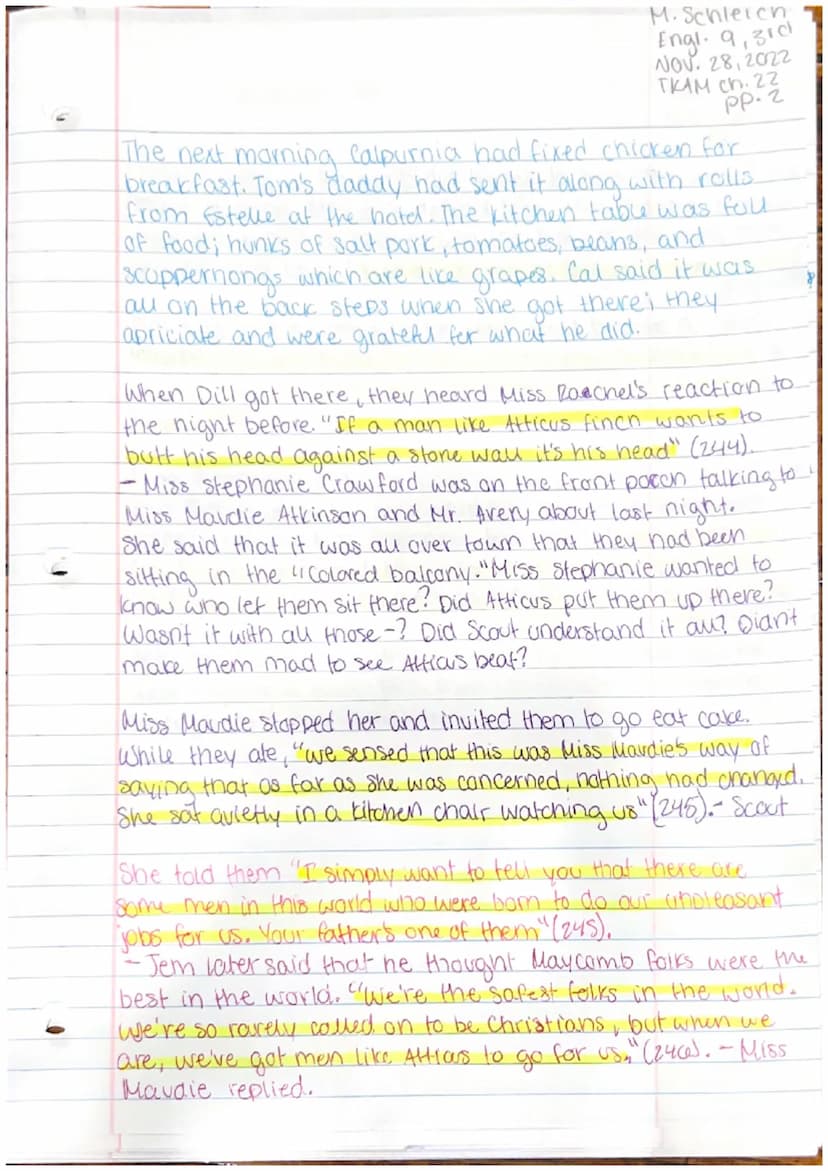 M. Schleich
Engl. 9, 3rd
Nov. 28, 2022
TKAM ch. 22
pp. 2
The next morning Calpurnia had fixed chicken for
breakfast. Tom's daddy had sent it along with rolls
from Estelle at the hotel. The kitchen table was full
of food; hunks of salt pork, tomatoes, beans, and
scuppernongs which are like grapes. Cal said it was
all on the back steps when she got there; they
apriciate and were grateful for what he did.
When Dill got there, they heard Miss Raechel's reaction to
the night before. "If a man like Atticus finch wants to
butt his head against a stone wall it's his head" (244).
- Miss Stephanie Crawford was on the front porch talking to
Miss Maudie Atkinson and Mr. Avery about last night.
She said that it was all over town that they had been
sitting in the "Colored balcony." Miss Stephanie wanted to
know who let them sit there? Did Atticus put them up there?
Wasn't it with all those -? Did Scout understand it all? Didn't
make them mad to see Atticus beat?
Miss Maudie stopped her and invited them to go eat cake.
While they ate, "we sensed that this was Miss Maudie's way of
saying that as far as she was concerned, nothing had changed.
She sat quietly in a kitchen chair watching us" (245).- Scout
She told them "I simply want to tell you that there are
some men in this world who were born to do our unpleasant
jobs for us. Your father's one of them" (245).
- Jem later said that he thought Maycomb folks were the
best in the world. "We're the safest folks in the world.
We're so rarely called on to be Christians, but when we
are, we've got men like Atticus to go for us." (246). - Miss
Maudie replied.